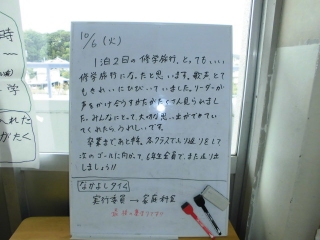 10/6 (火)
1泊2日の修学旅行、とってもいい
修学旅行になったと思います。歌声とて
もきれいにひびいていました。リーダーが
声をかけ合うすがたがたくさん見られまし
た。みんなにとって、大切な思い出ができてい
てくれたらうれしいです。
卒業まであと約 各クラスでふり返りをして
次のゴールに向かって、6年生全員で、また走り出
しましょう!!
なかよしタイム
実行委員→家庭科室
時~
学
がたく